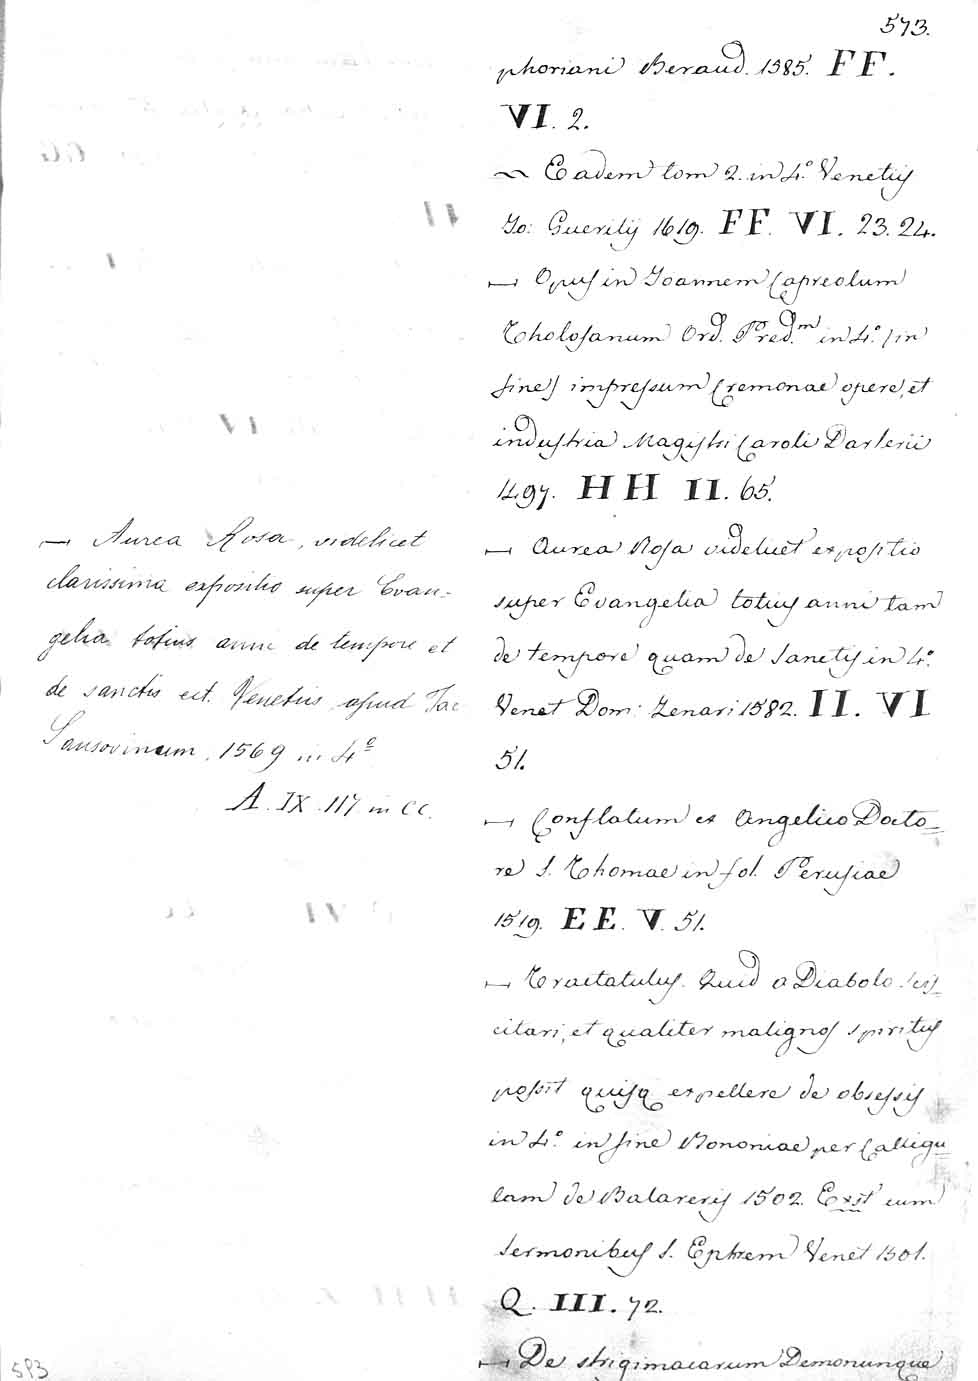 573.
phoriani Beraud. 1585. FF.
VI. 2.
~ Eadem tom 2. in 4.º Venetijs
Jo: Guerilij 1619. FF. VI. 23. 24.
— Opus in Joannem Capreolum
Tholosanum Ord. Pred.m in 4.º (in
fine) impressum Cremonae opere, et
industria Magistri Caroli Darlerii
1497. HH II. 65.
— Aurea Rosa videlicet expositio
super Evangelia totius anni tam
de tempore quam de Sanctis in 4.º
Venet Dom: Zenari 1582. II. VI
51.
— Conflatum ex Angelico Docto=
re S. Thomae in fol. Perusiae
1519. EE. V. 51.
— Tractatulus. Quid a Diabolo scis=
citari, et qualiter malignos spiritus
possit quisq expellere de obsessis
in 4.º in fine Bononiae per Calligu=
lam de Balareris 1502. Exst cum
Sermonibus S. Ephrem Venet 1501.
Q. III. 72.
— De strigimacarum Demonumque
— Aurea Rosa, videlicet
clarissima expositio super Evan-
gelia totius anni de tempore et
de sanctis ect. Venetiis, apud Jac
Sansovinum, 1569 in 4º
A. IX. 117. in CC.
593